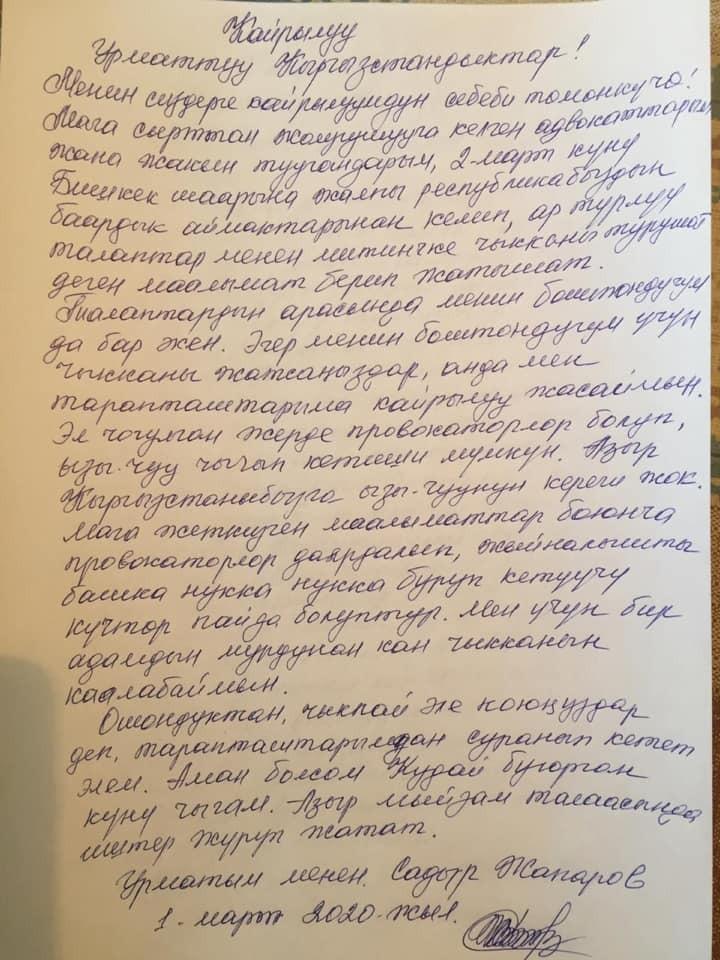 Кайрылуу
Урматтуу Кыргызстандыктар!
Менин сиздерге кайрылуумдун себеби томонкучо!
Мага сырттан жолугушууга келген адвокаттарым
жана жакын туугандарым, 2-март куну
Бишкек шаарына жалпы республикабыздын
баардык аймактарынан келип, ар турлуу
талаптар менен митингке чыкканы турушат
деген маалымат берип жатышат.
Талаптардын арасында менин боштондугум
да бар экен. Эгер менин боштондугум учун
чыкканы жатсаңыздар, анда мен
тарапташтарыма кайрылуу жасаймын.
Эл чогулган жерде провокаторлор болуп,
ызы-чуу чыгып кетиши мумкун. Азыр
Кыргызстаныбызга ызы-чуунун кереги жок.
Мага жеткизген маалыматтар боюнча
провокаторлор даярдалып, жыйналышты
башка нукка нукка буруп кетуучу
кучтор пайда болуптур. Мен учун бир
адамдын мурдунан кан чыкканын
каалабаймын.
Ошондуктан, чыкпай эле коюңуздар
деп, тарапташтарымдан суранып кетет
элем. Аман болсом Кудай буюрган
куну чыгам. Азыр мыйзам талаасында
иштер журуп жатат.
Урматым менен. Садыр Жапаров
1-март 2020-жыл.